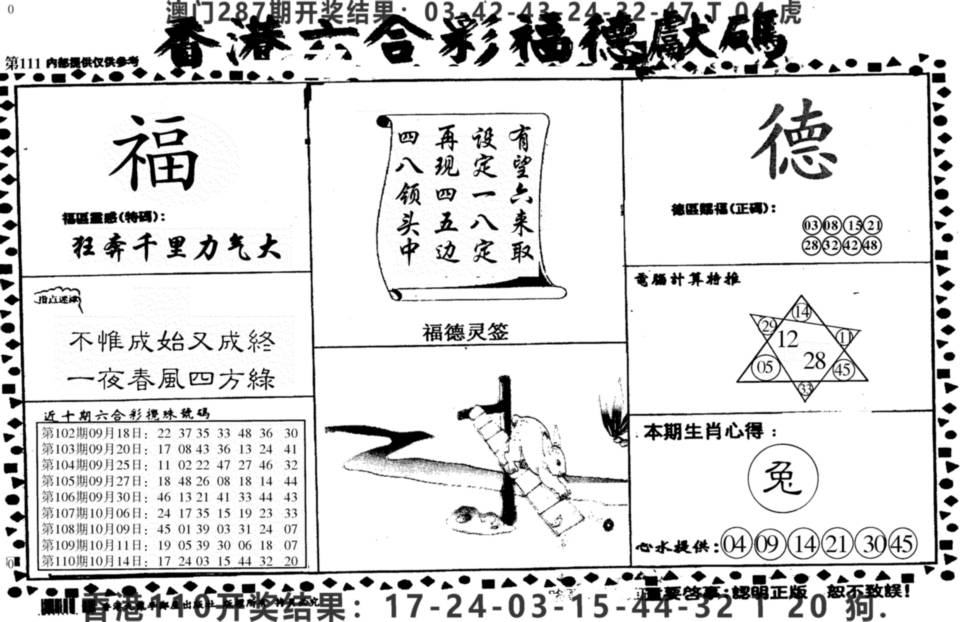 澳门287期开奖结果：03-42-43-24-32-47 T 04 虎
香港六合彩福德獻碼
第111 内部提供仅供参考
福
福區靈感(特碼)：
狂奔千里力气大
指点迷津
不惟成始又成終
一夜春風四方綠
近十期六合彩攪珠號碼
第102期09月18日：22 37 35 33 48 36 30
第103期09月20日：17 08 43 36 13 24 41
第104期09月25日：11 02 22 47 27 46 32
第105期09月27日：18 48 26 08 18 14 44
第106期09月30日：46 13 21 41 33 44 43
第107期10月06日：24 17 35 15 19 23 33
第108期10月09日：45 01 39 03 31 24 07
第109期10月11日：19 05 39 30 06 18 07
第110期10月14日：17 24 03 15 44 32 20
有望六来取
设定一八定
再现四五边
四八领头中
福德灵签
德
德區賜福(正碼)：
03 08 15 21
28 32 42 48
電腦計算特推
14
29
11
12
28
05
45
33
本期生肖心得：
兔
心水提供：04 09 14 21 30 45
重要啓事：認明正版 恕不致誤！
香港110开奖结果：17-24-03-15-44-32 T 20 狗.